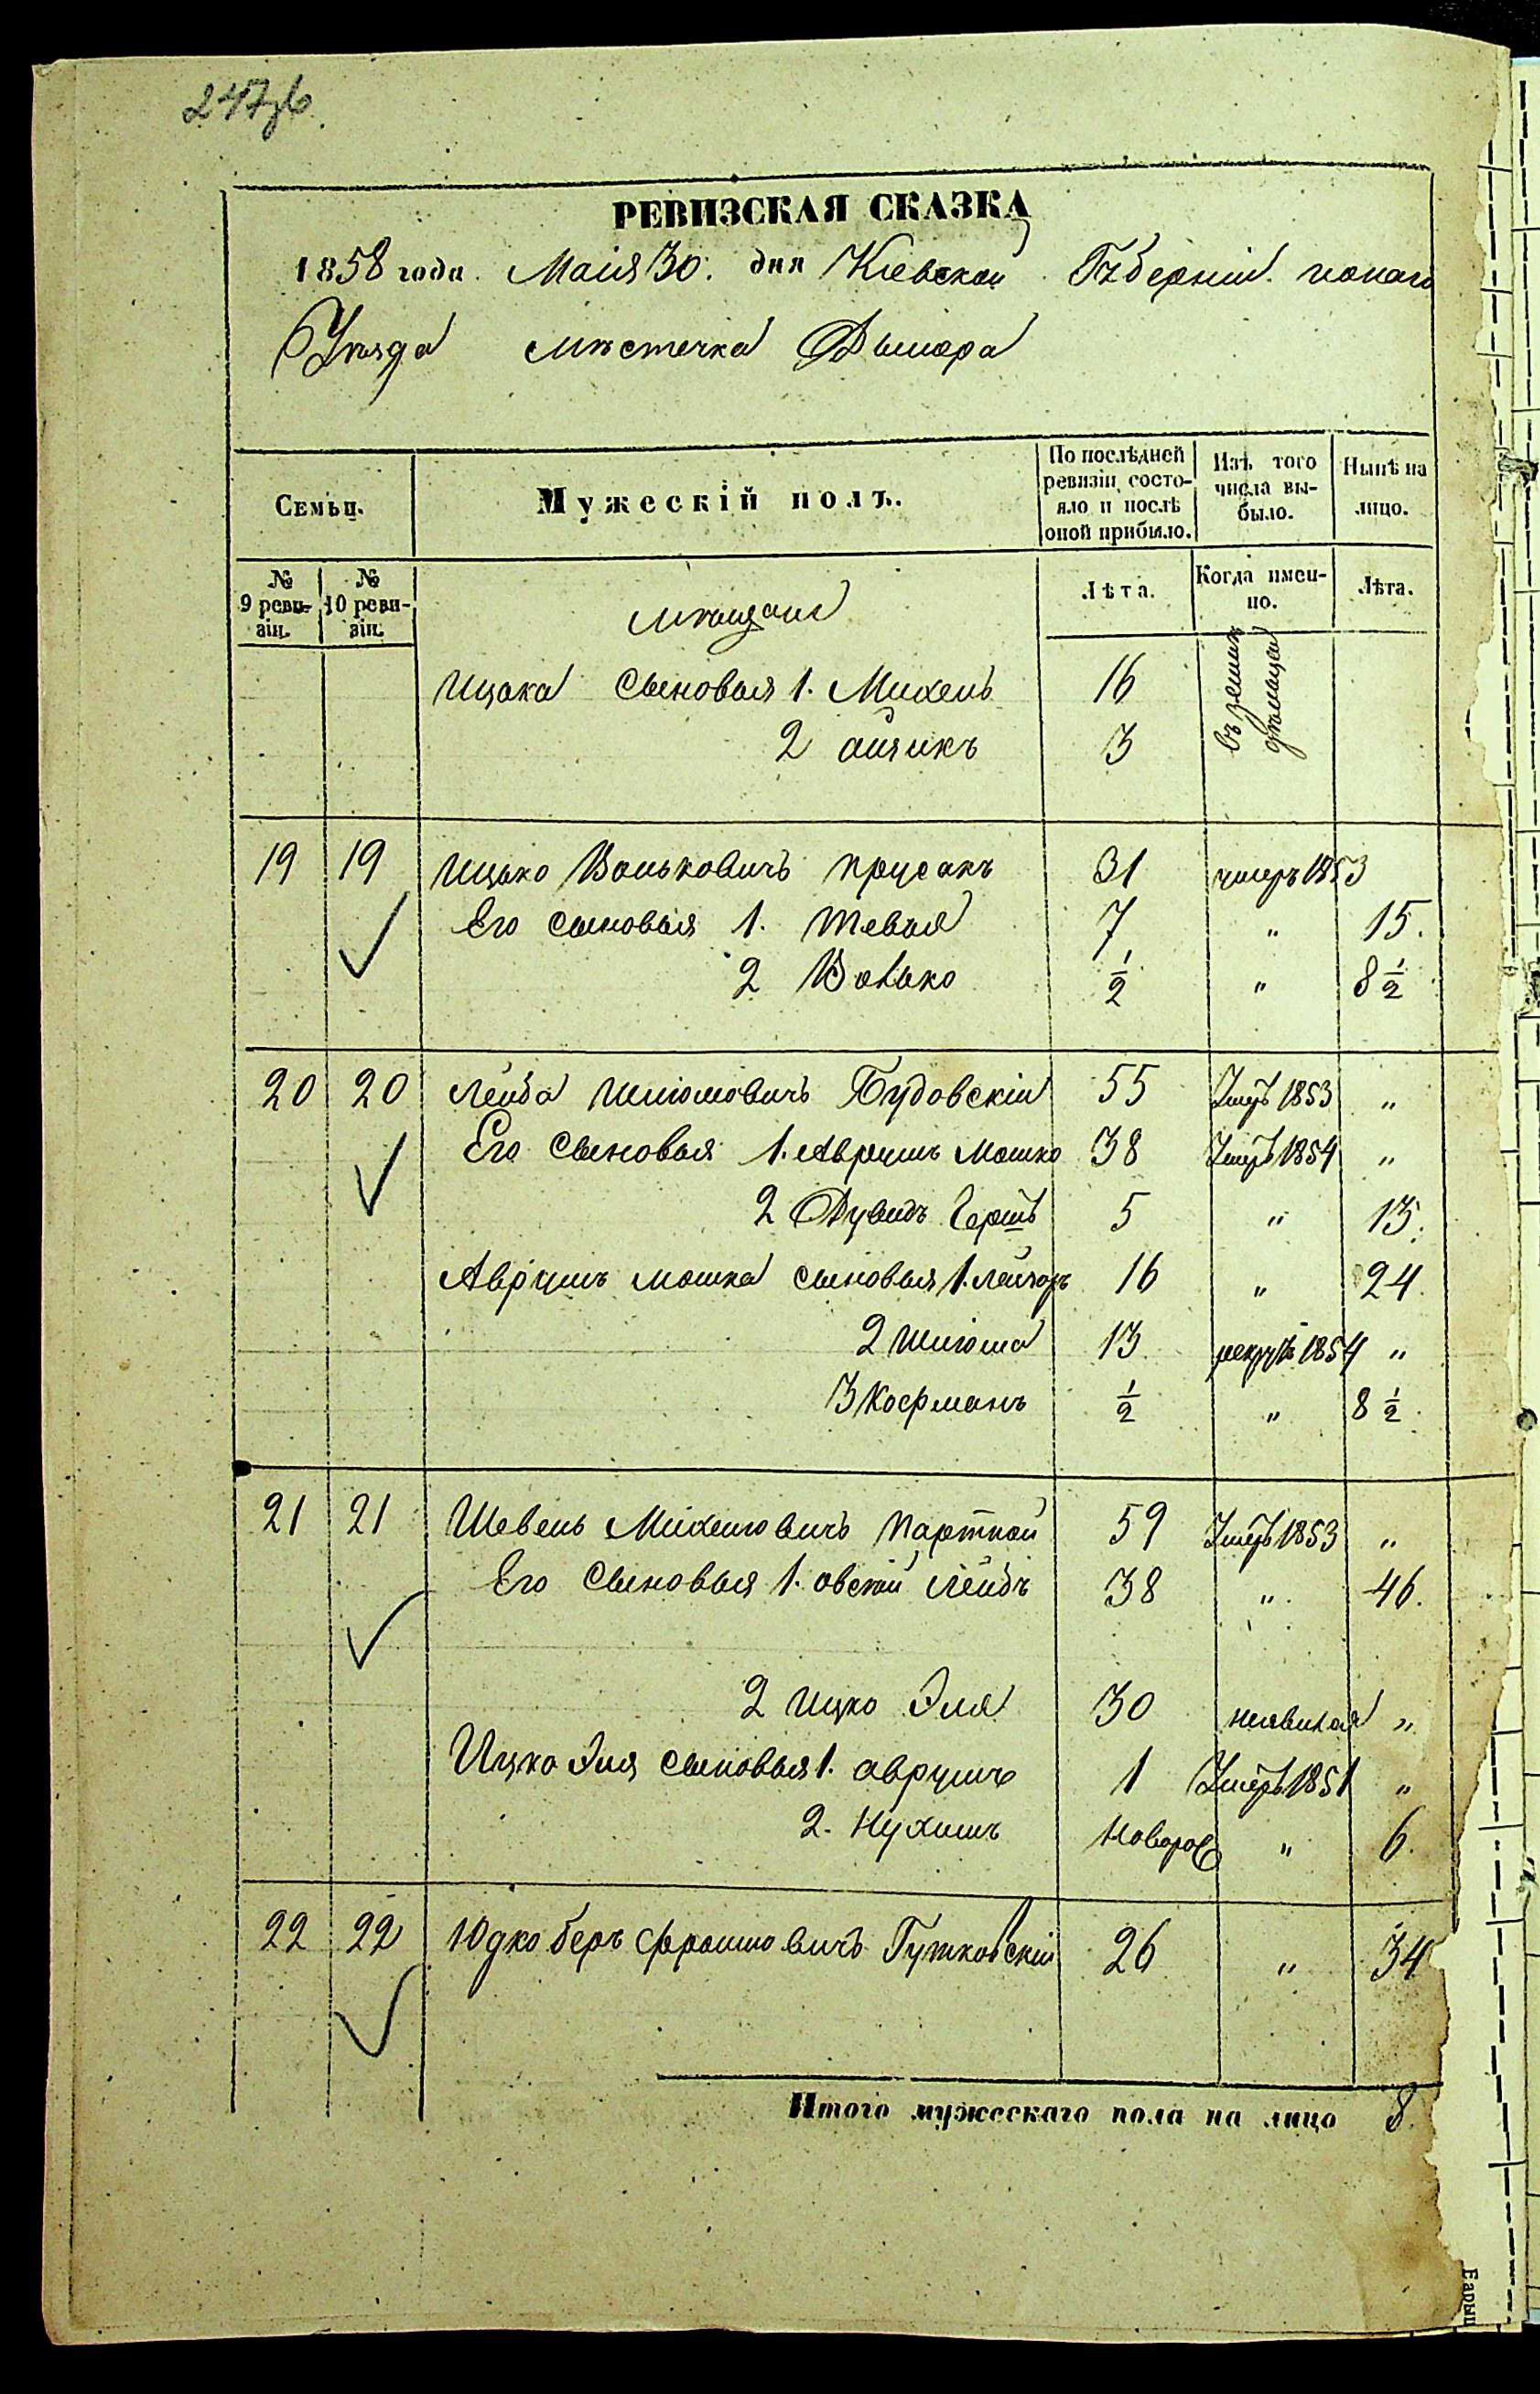 РЕВИЗСКАЯ СКАЗКА
1858 года Маія 30 дня Кіевской Губерніи
Уѣзда мѣстечка Дымера
Семьи.
Мужескій полъ.
По послѣдней ревизіи состояло и послѣ оной прибыло.
Изъ того числа выбыло.
Нынѣ на лицо.
№ 9 ревизіи.
№ 10 ревизіи.
мѣщане
Лѣта.
Когда именно.
Лѣта.
Ицка Сыновья 1. Михель 16 въ земле
2 3
19 19 Ицько Вольковичъ Прусакъ 31 умеръ 1853
Его сыновья 1. Тевья 7 " 15.
2 Волько ½ " 8 ½
20 20 Лейба Шлiомовичъ Будовскій 55 Умеръ 1853 "
Его Сыновья 1. Аврумъ Мошко 38 Умеръ 1854 "
2 Дувидъ Гершъ 5 " 13.
Аврумъ Мошка сыновья 1. Лейзоръ 16 " 24.
2 Шлiома 13 рекрутъ 1854 "
3 Кофманъ ½ " 8 ½
21 21 Шевель Михелiовичъ Партной 59 Умеръ 1853 "
Его Сыновья 1. Овсей Лейбъ 38 " 46.
2 Ицко Эля 30 "
Ицко Эля сыновья 1. Аврумъ 1 Умеръ 1851 "
2. Нухимъ Новорож " 6.
22 22 Юдко Беръ Фроимовичъ Гутковскій 26 " 34
Итого мужескаго пола на лицо 8.